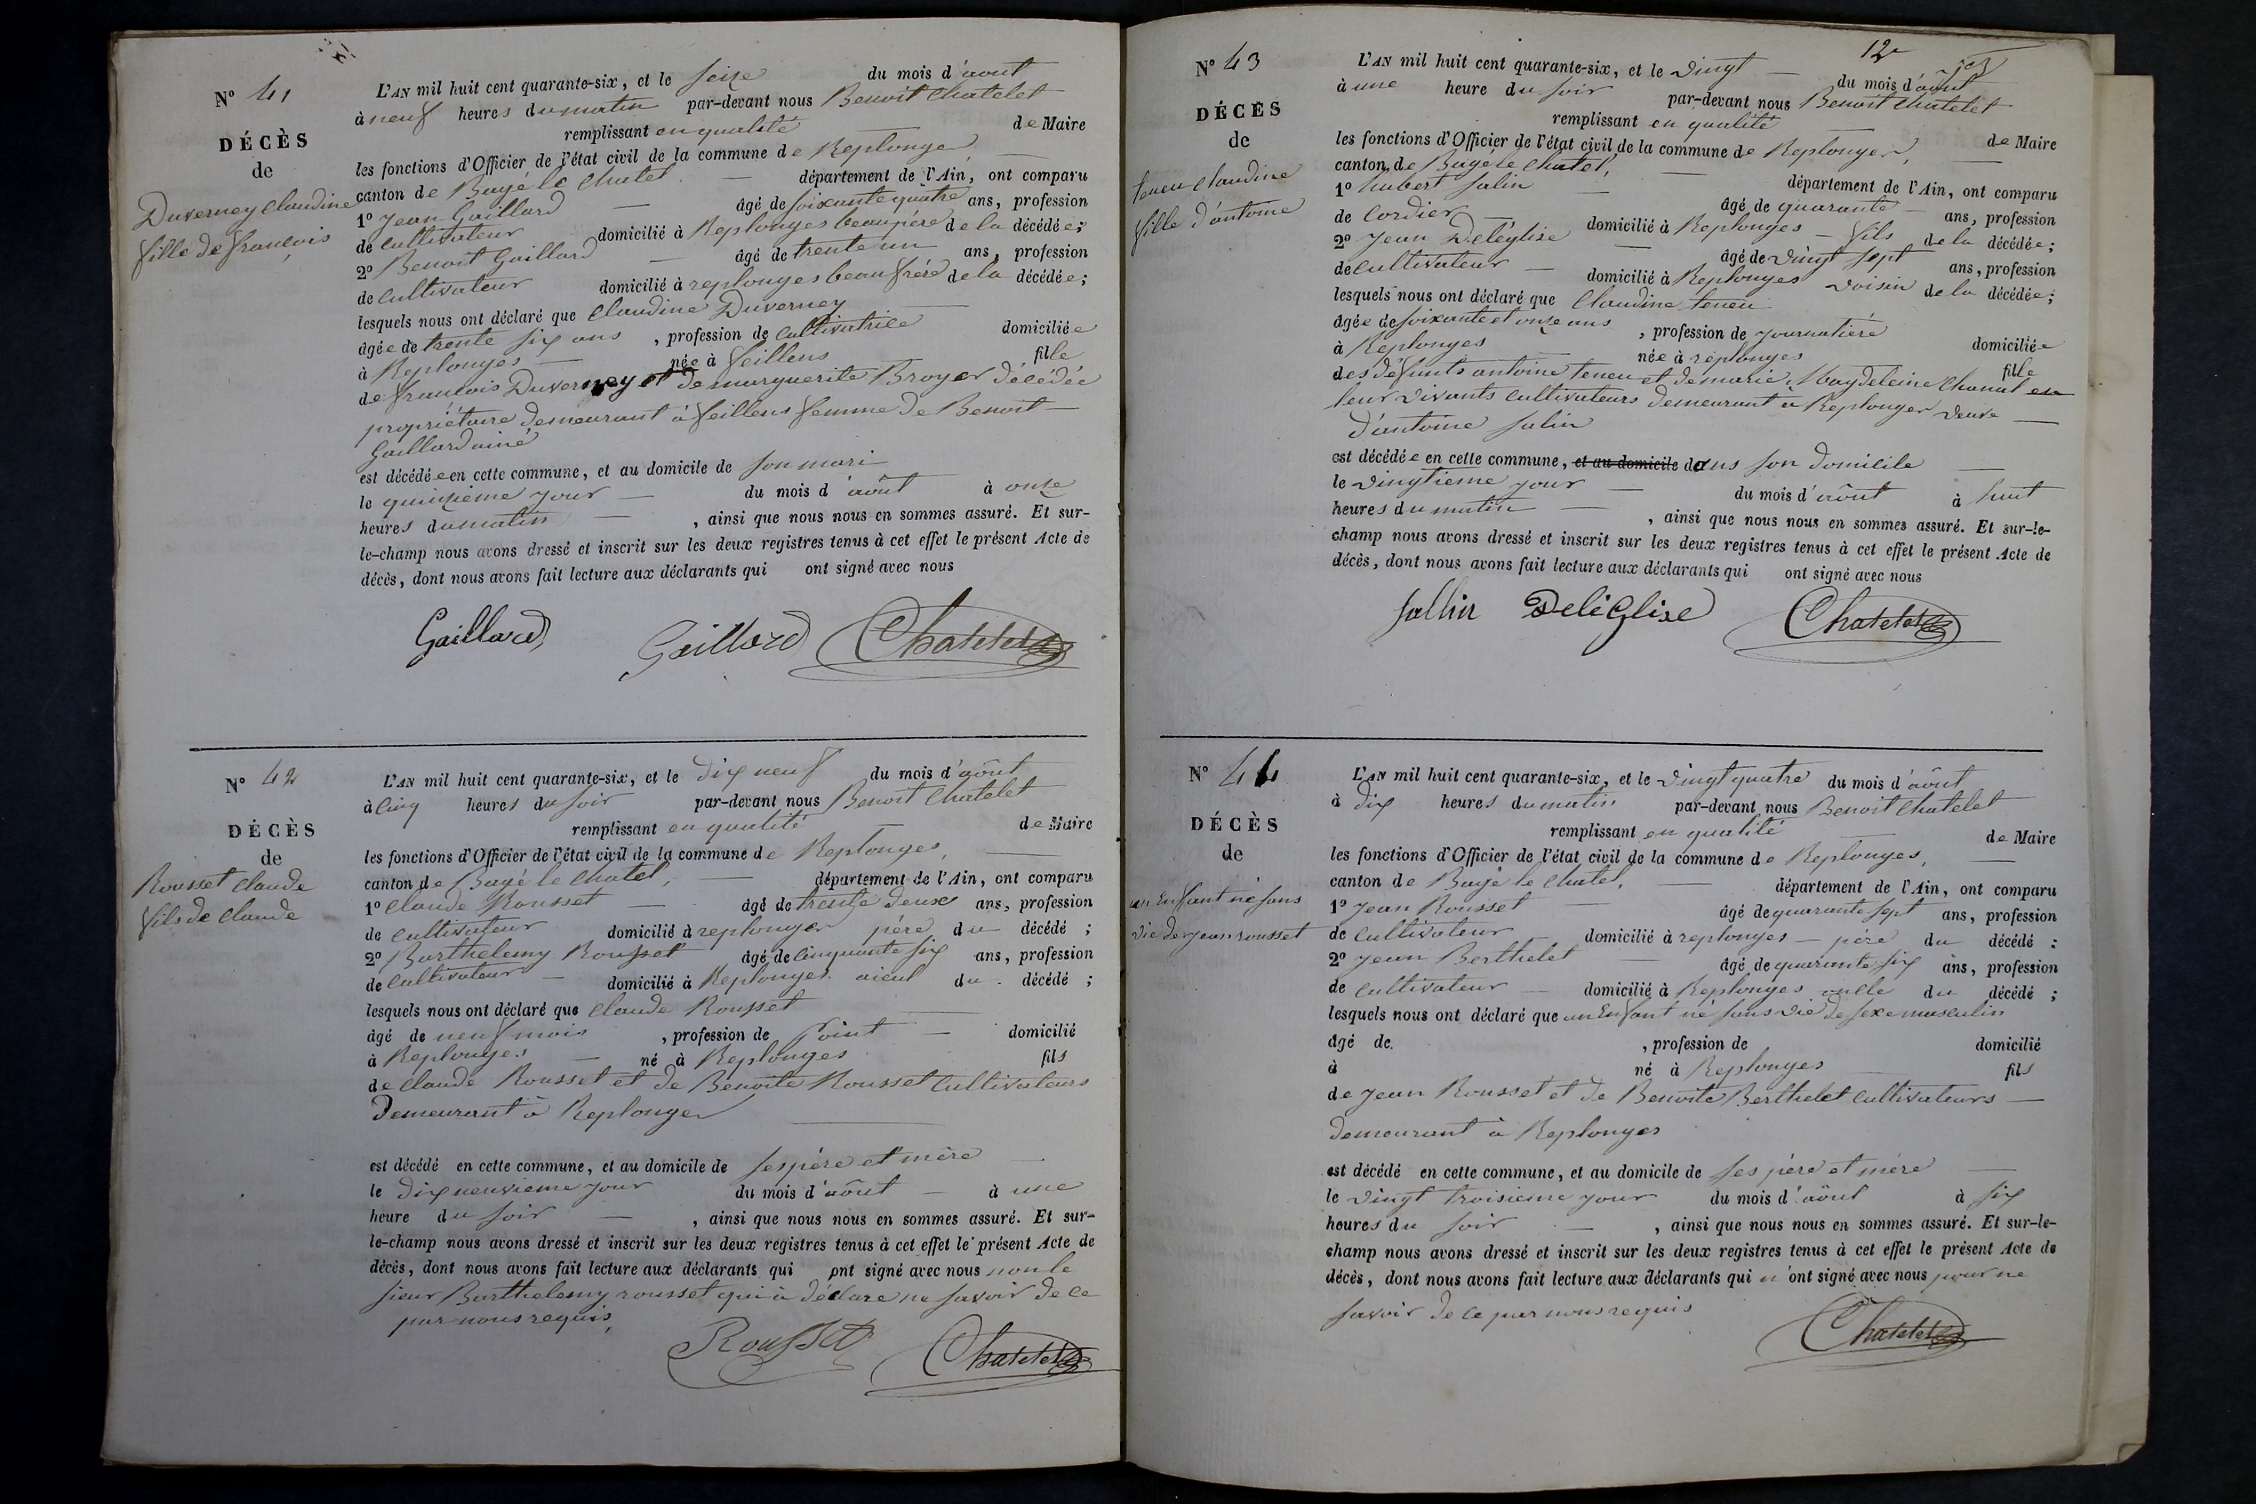 N° 41
DÉCÈS
de
Duverney Claudine
fille de françois
L'AN mil huit cent quarante-six, et le seize du mois d'août
à neuf heures du matin par-devant nous Benoit Chatelet
remplissant en qualité de Maire
les fonctions d'Officier de l'état civil de la commune de Replonges
canton de Bagé le Chatel, département de l'Ain, ont comparu
1° Jean Gaillard âgé de soixante quatre ans, profession
de cultivateur domicilié à Replonges beaupére de la décédée;
2° Benoit Gaillard âgé de trente un ans, profession
de cultivateur domicilié à replonges beaufrére de la décédée;
lesquels nous ont déclaré que Claudine Duverney
âgée de trente six ans, profession de cultivatrice domiciliée
à Replonges née à feillens fille
de françois Duverney et de marguerite Broyer décédée
propriétaire demeurant à feillens femme de Benoit
Gaillard ainé
est décédée en cette commune, et au domicile de son mari
le quinzième jour du mois d'août à onze
heures du matin, ainsi que nous nous en sommes assuré. Et sur-
le-champ nous avons dressé et inscrit sur les deux registres tenus à cet effet le présent Acte de
décès, dont nous avons fait lecture aux déclarants qui ont signé avec nous
Gaillard Gaillard Chatelet
N° 42
DÉCÈS
de
Rousset Claude
fils de Claude
L'AN mil huit cent quarante-six, et le dix neuf du mois d'août
à cinq heures du soir par-devant nous Benoit Chatelet
remplissant en qualité de Maire
les fonctions d'Officier de l'état civil de la commune de Replonges,
canton de Bagé le Chatel, département de l'Ain, ont comparu
1° Claude Rousset âgé de trente deux ans, profession
de cultivateur domicilié à replonges pére du décédé;
2° Barthelemy Rousset âgé de cinquante six ans, profession
de cultivateur domicilié à Replonges aieul du décédé;
lesquels nous ont déclaré que Claude Rousset
âgé de neuf mois, profession de point domicilié
à Replonges né à Replonges fils
de Claude Rousset et de Benoite Rousset cultivateurs
demeurant à Replonges
est décédé en cette commune, et au domicile de ses pére et mère
le dix neuvieme jour du mois d'août à une
heure du soir, ainsi que nous nous en sommes assuré. Et sur-
le-champ nous avons dressé et inscrit sur les deux registres tenus à cet effet le présent Acte de
décès, dont nous avons fait lecture aux déclarants qui ont signé avec nous non le
sieur Barthelemy rousset qui à déclare ne savoir de ce
par nous requis,
Rousset Chatelet
12e
N° 43
DÉCÈS
de
teneu Claudine
fille d'antoine
L'AN mil huit cent quarante-six, et le vingt du mois d'août
à une heure du soir par-devant nous Benoit Chatelet
remplissant en qualité de Maire
les fonctions d'Officier de l'état civil de la commune de Replonges,
canton de Bagé le Chatel, département de l'Ain, ont comparu
1° hubert salin âgé de quarante ans, profession
de Cordier domicilié à Replonges fils de la décédée;
2° Jean Deléglise âgé de vingt sept ans, profession
de cultivateur domicilié à Replonges voisin de la décédée;
lesquels nous ont déclaré que Claudine teneu
âgée de soixante et onze ans, profession de journaliére domiciliée
à Replonges née à réplonges fille
des défunts antoine teneu et de marie Magdeleine Chanal en
leur vivants cultivateurs demeurant à Replonges veuve
d'antoine salin
est décédée en cette commune, et au domicile dans son domicile
le vingtieme jour du mois d'août à huit
heures du matin, ainsi que nous nous en sommes assuré. Et sur-le-
champ nous avons dressé et inscrit sur les deux registres tenus à cet effet le présent Acte de
décès, dont nous avons fait lecture aux déclarants qui ont signé avec nous
Sallin Deléglise Chatelet
N° 44
DÉCÈS
de
un Enfant né sans
vie de jean rousset
L'AN mil huit cent quarante-six, et le vingt quatre du mois d'août
à dix heures du matin par-devant nous Benoit Chatelet
remplissant en qualité de Maire
les fonctions d'Officier de l'état civil de la commune de Replonges,
canton de Bagé le Chatel, département de l'Ain, ont comparu
1° Jean Rousset âgé de quarante sept ans, profession
de cultivateur domicilié à replonges pére du décédé;
2° Jean Berthelet âgé de quarante six ans, profession
de cultivateur domicilié à Replonges oncle du décédé;
lesquels nous ont déclaré que un Enfant né sans vie de sexe masculin
âgé de, profession de domicilié
à né à Replonges fils
de Jean Rousset et de Benoite Berthelet cultivateurs
demeurant à Replonges
est décédé en cette commune, et au domicile de ses pére et mére
le vingt troisieme jour du mois d'août à six
heures du soir, ainsi que nous nous en sommes assuré. Et sur-le-
champ nous avons dressé et inscrit sur les deux registres tenus à cet effet le présent Acte de
décès, dont nous avons fait lecture aux déclarants qui n'ont signé avec nous pour ne
savoir de ce par nous requis
Chatelet